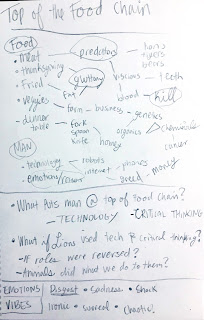 Top of the Food Chain
Food
predators
lions
tigers
bears
• meat
• thanksgiving
gluttony
vicious
teeth
• Fried
Fat
blood
Kill
• veggies
farm - business
genetics
• dinner table
fork
spoon
knife
organics
chemicals
honey
cancer
MAN
• technology
robots
internet
phones
• emotions/reason
Greed - money
• What puts man @ top of food chain?
- TECHNOLOGY
- CRITICAL THINKING
• What if Lions used tech & critical thinking?
- If roles were reversed?
- Animals did what we do to them?
EMOTIONS
Disgust • Sadness • Shock
VIBES
Ironic • surreal • chaotic!